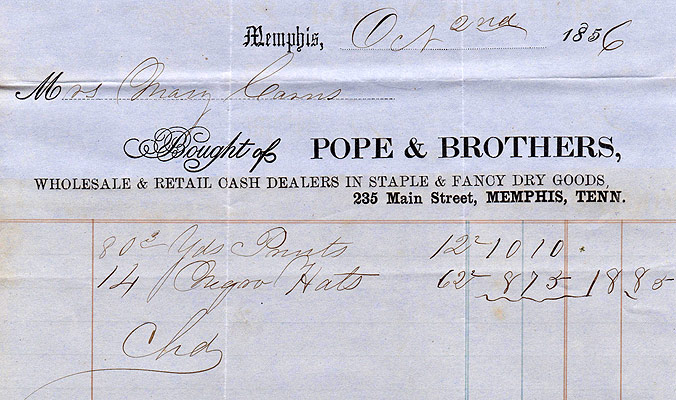 Memphis, Oct 2nd 1856
Mrs Mary Carns
Bought of POPE & BROTHERS,
WHOLESALE & RETAIL CASH DEALERS IN STAPLE & FANCY DRY GOODS,
235 Main Street, MEMPHIS, TENN.
80³ Yds Prints 12½ 10 10
14 Negro Hats 62½ 8 75 18 85
Chd